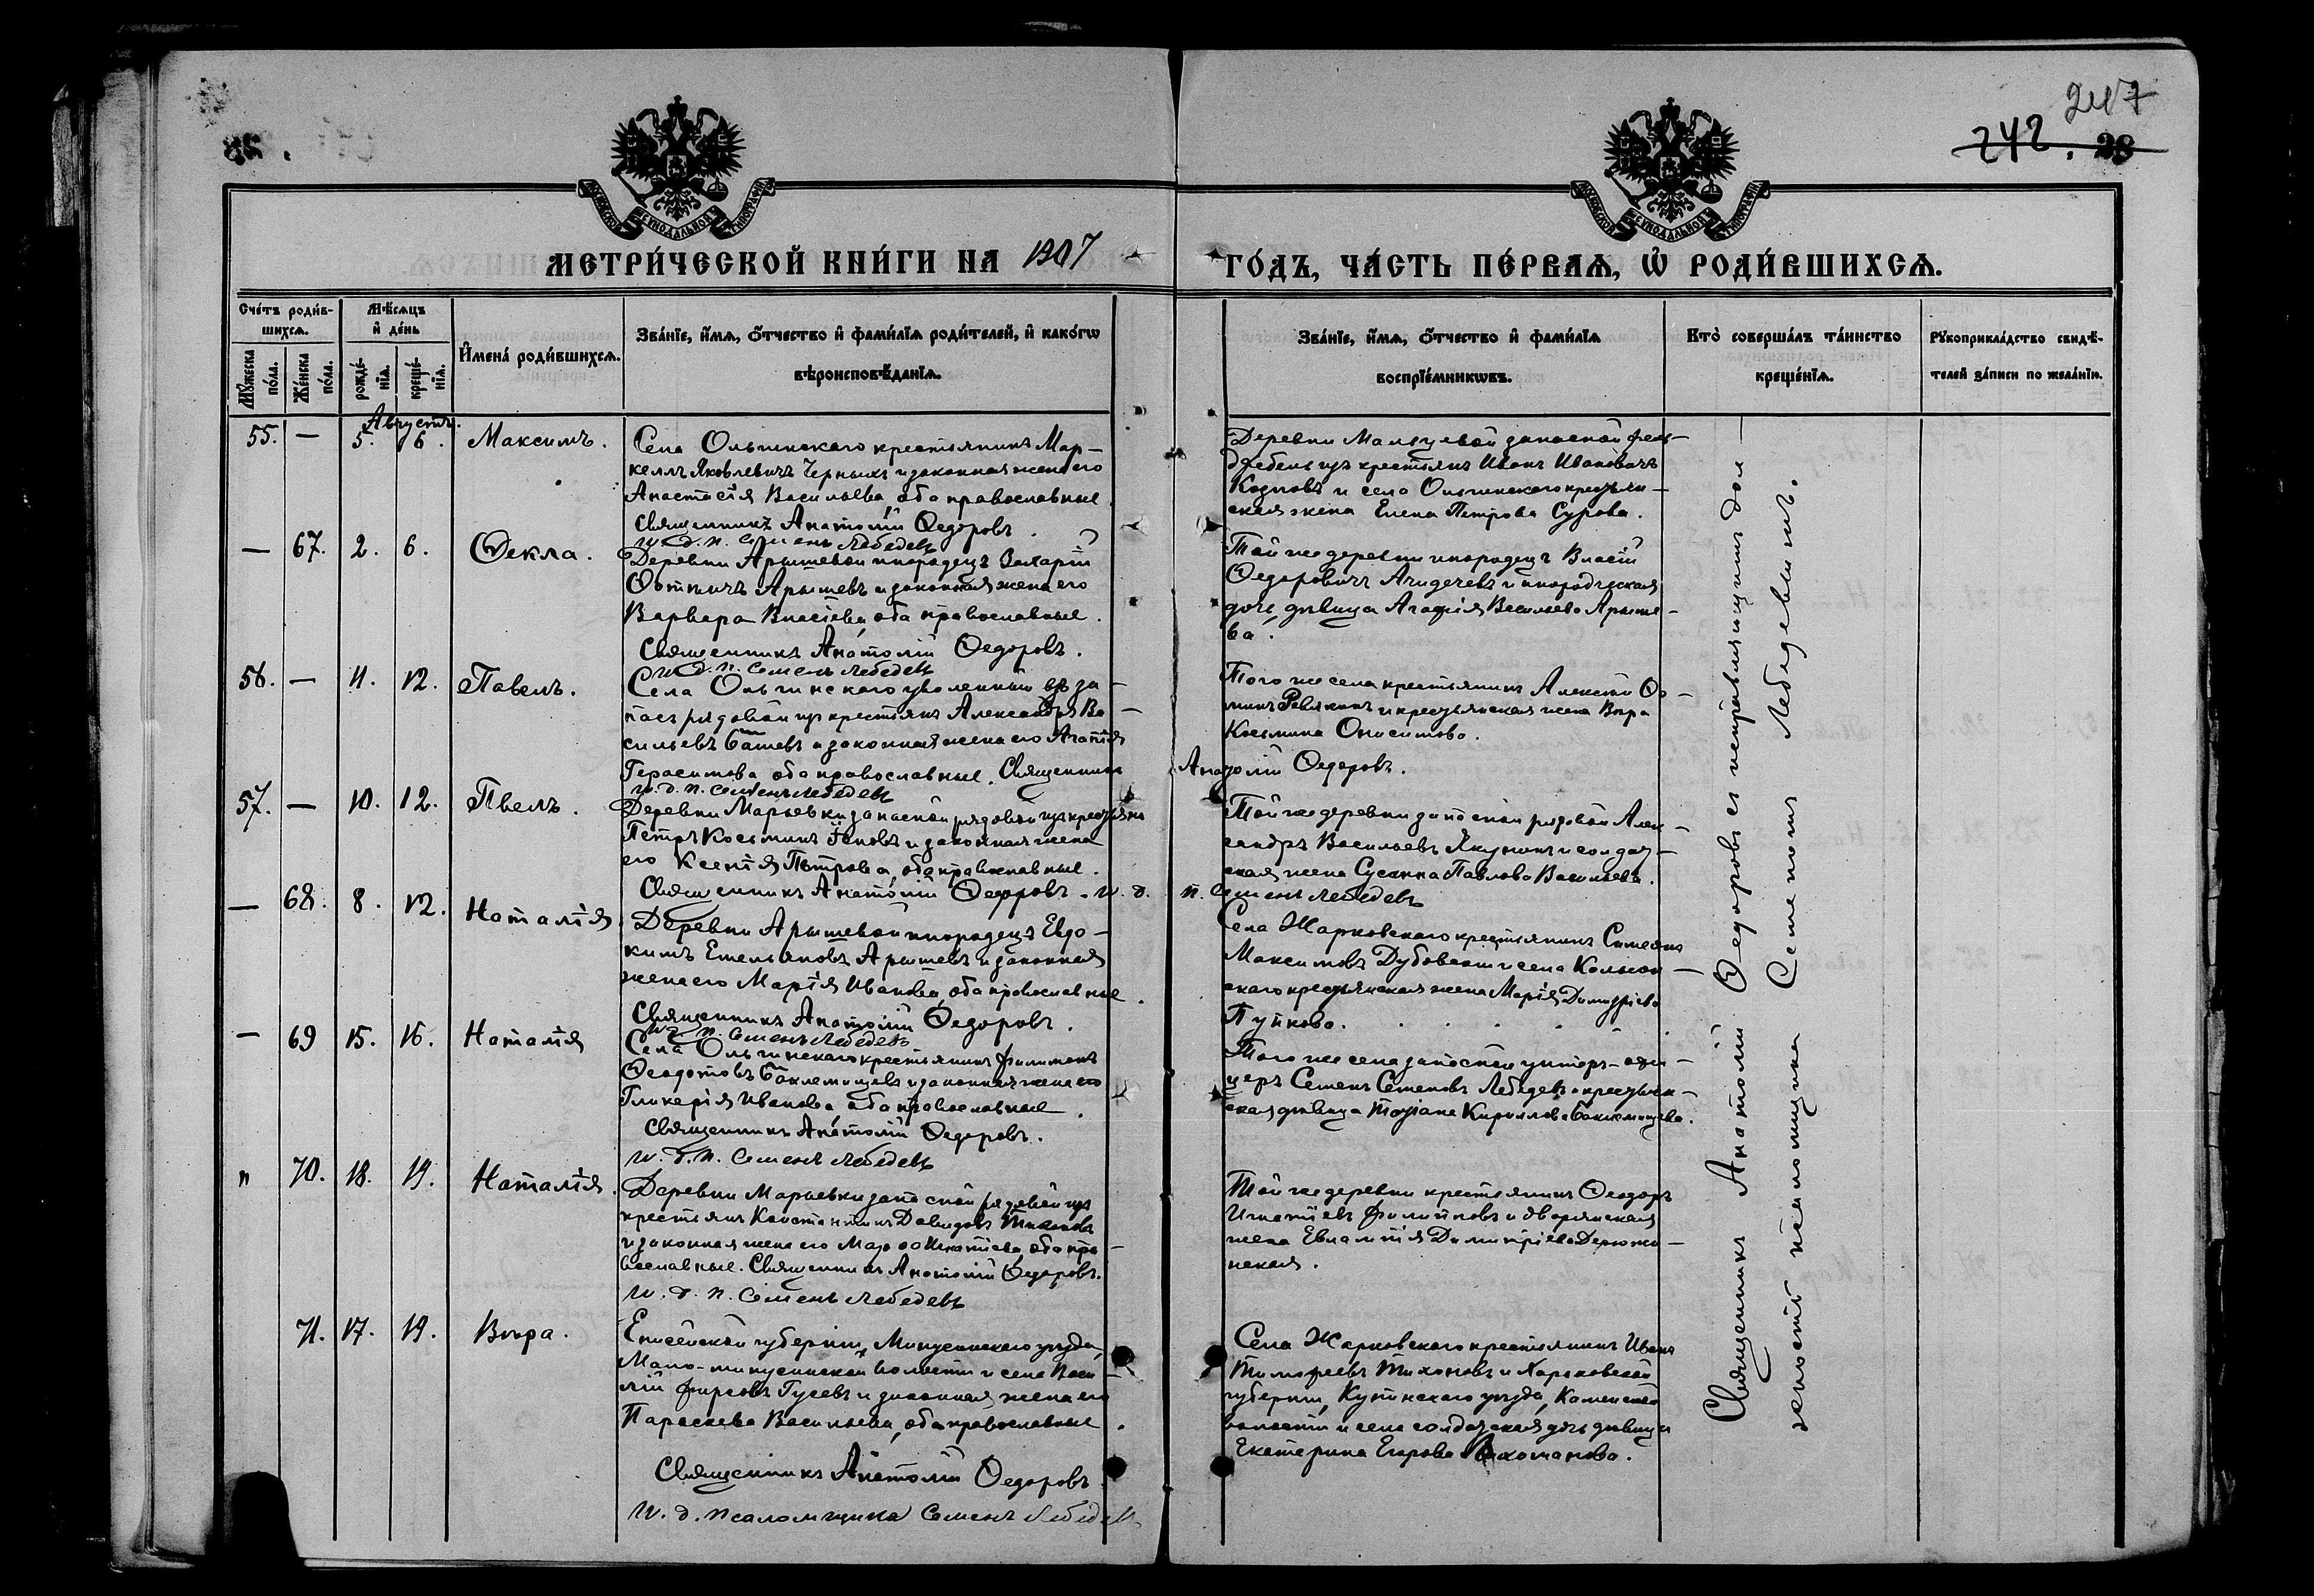 247
242. 28
МЕТРИ́ЧЕСКОЙ КНИ́ГИ НА 1907 ГО́ДЪ, ЧА́СТЬ ПЕ́РВАѦ, Ѡ҆ РОДИ́ВШИХСѦ.
Сче́тъ роди́в-
шихсѧ.
Мꙋ́жеска по́ла.
Же́нска по́ла.
Мѣ́сѧцъ и҆ де́нь
рожде́-
нїѧ.
креще́-
нїѧ.
И҆мена̀ роди́вшихсѧ.
Зва́нїе, и҆́мѧ, ѻ҆́тчество и҆ фами́лїѧ роди́телей, и҆ како́гѡ
вѣроисповѣ́данїѧ.
Зва́нїе, и҆́мѧ, ѻ҆́тчество и҆ фами́лїѧ
воспрїе́мникѡвъ.
Кто̀ соверша́лъ та́инство
креще́нїѧ.
Рꙋкоприкла́дство свидѣ́-
телей за́писи по жела́нїю.
Августъ.
55. — 5. 6. Максимъ.
Села Ольгинскаго крестьянинъ Мар-
келлъ Яковлевичъ Черныхъ и законная жена его
Анастасія Васильева, оба православные.
Священникъ Анатолій Ѳедоровъ.
и. д. п. Семенъ Лебедевъ
Деревни Мальцевой запасной
изъ крестьянъ Иванъ Ивановичъ
Козловъ и села Ольгинскаго крестьян-
ская жена Елена Петрова Сурова.
— 67. 2. 6. Ѳекла.
Деревни Арыштевой инородецъ Захарій
Арыштевъ и законная жена его
Варвара Власіева, оба православные.
Священникъ Анатолій Ѳедоровъ.
и. д. п. Семенъ Лебедевъ
Той же деревни инородецъ Власій
Ѳедоровичъ и инородческая
дочь девица Агафія Васильева Арыште-
ва.
56. — 11. 12. Павелъ.
Села Ольгинскаго уволенный въ за-
пасъ рядовой изъ крестьянъ Александръ Ва-
сильевъ и законная жена его Агапія
Герасимова, оба православные. Священникъ Анатолій Ѳедоровъ.
и. д. п. Семенъ Лебедевъ
Того же села крестьянинъ Алексѣй Ѳо-
минъ Ревякинъ и крестьянская жена Вѣра
Косьмина Онисимова.
57. — 10. 12. Пвелъ.
Деревни Марьевки запасной рядовой изъ крестьянъ
Петръ Косьминъ и законная жена
его Ксенія Петрова, оба православные.
Священникъ Анатолій Ѳедоровъ. и. д. п. Семенъ Лебедевъ
Той же деревни запасной рядовой Алек-
сандръ Васильевъ Якунинъ и солдат-
ская жена Сусанна Павлова Васильева.
— 68. 8. 12. Наталія
Деревни Арыштевой инородецъ Евдо-
кимъ Емельяновъ Арыштевъ и законная
жена его Марія Иванова, оба православные.
Священникъ Анатолій Ѳедоровъ.
и. д. п. Семенъ Лебедевъ
Села Жарковскаго крестьянинъ Симеонъ
Максимовъ Дубовской и села
крестьянская жена Марія Димитріева
Пупкова.
— 69 15. 16. Наталія
Села Ольгинскаго крестьянинъ Филимонъ
Ѳеодотовъ Баклемищевъ и законная жена его
Гликерія Иванова, оба православные.
Священникъ Анатолій Ѳедоровъ.
и. д. п. Семенъ Лебедевъ
Того же села запасный унтеръ-офи-
церъ Семенъ Семеновъ Лебедевъ и крестьян-
ская девица Татіана Кириллова Баклемищева.
" 70. 18. 19. Наталія.
Деревни Марьевки запасной рядовой изъ
крестьянъ Константинъ Давидовъ
и законная жена его Марѳа Игнатіева, оба пра-
вославные. Священникъ Анатолій Ѳедоровъ.
и. д. п. Семенъ Лебедевъ
Той же деревни крестьянинъ Ѳеодоръ
Игнатіевъ Филипповъ и дворянская
жена Евлампія Димитріева
71. 17. 19. Вѣра.
Енисейской губерніи, Минусинскаго уѣзда,
Мало-минусинской волости и села Васи-
лій Фирсовъ Гусевъ и законная жена его
Параскева Васильева, оба православные.
Священникъ Анатолій Ѳедоровъ
и. д. псаломщика Семенъ Лебедевъ
Села Жарковскаго крестьянинъ Иванъ
Тимофеевъ Тихоновъ и Харьковской
губерніи, Купянскаго уѣзда, Каменской
волости и села солдатская дочь девица
Екатерина Егорова
Священникъ Анатолій Ѳедоровъ съ исправляющимъ дол-
жность псаломщика Семеномъ Лебедевымъ.